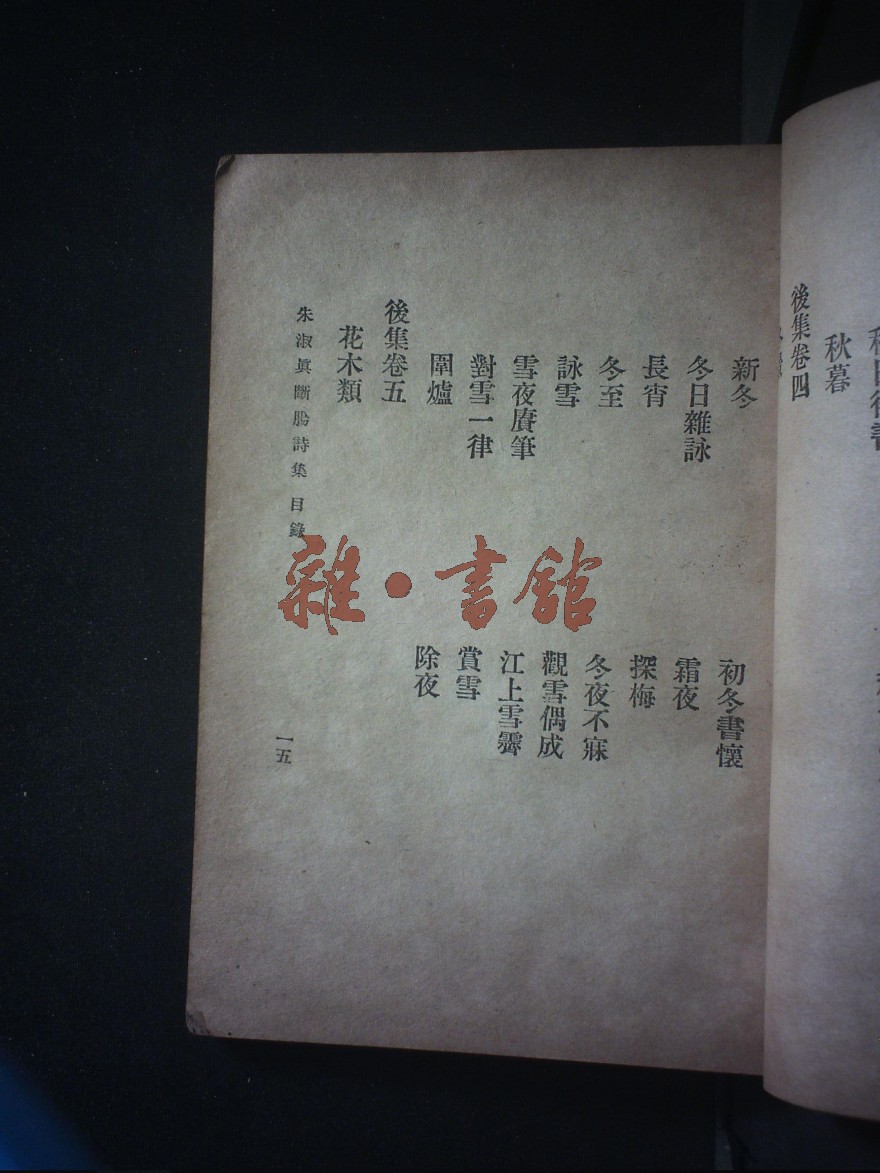 後集卷四
秋暮
新冬
初冬書懷
冬日雜詠
霜夜
長宵
探梅
冬至
冬夜不寐
詠雪
觀雪偶成
雪夜賡筆
江上雪霽
對雪一律
賞雪
圍爐
除夜
後集卷五
花木類
朱淑眞斷腸詩集 目錄
一五
雜·書館